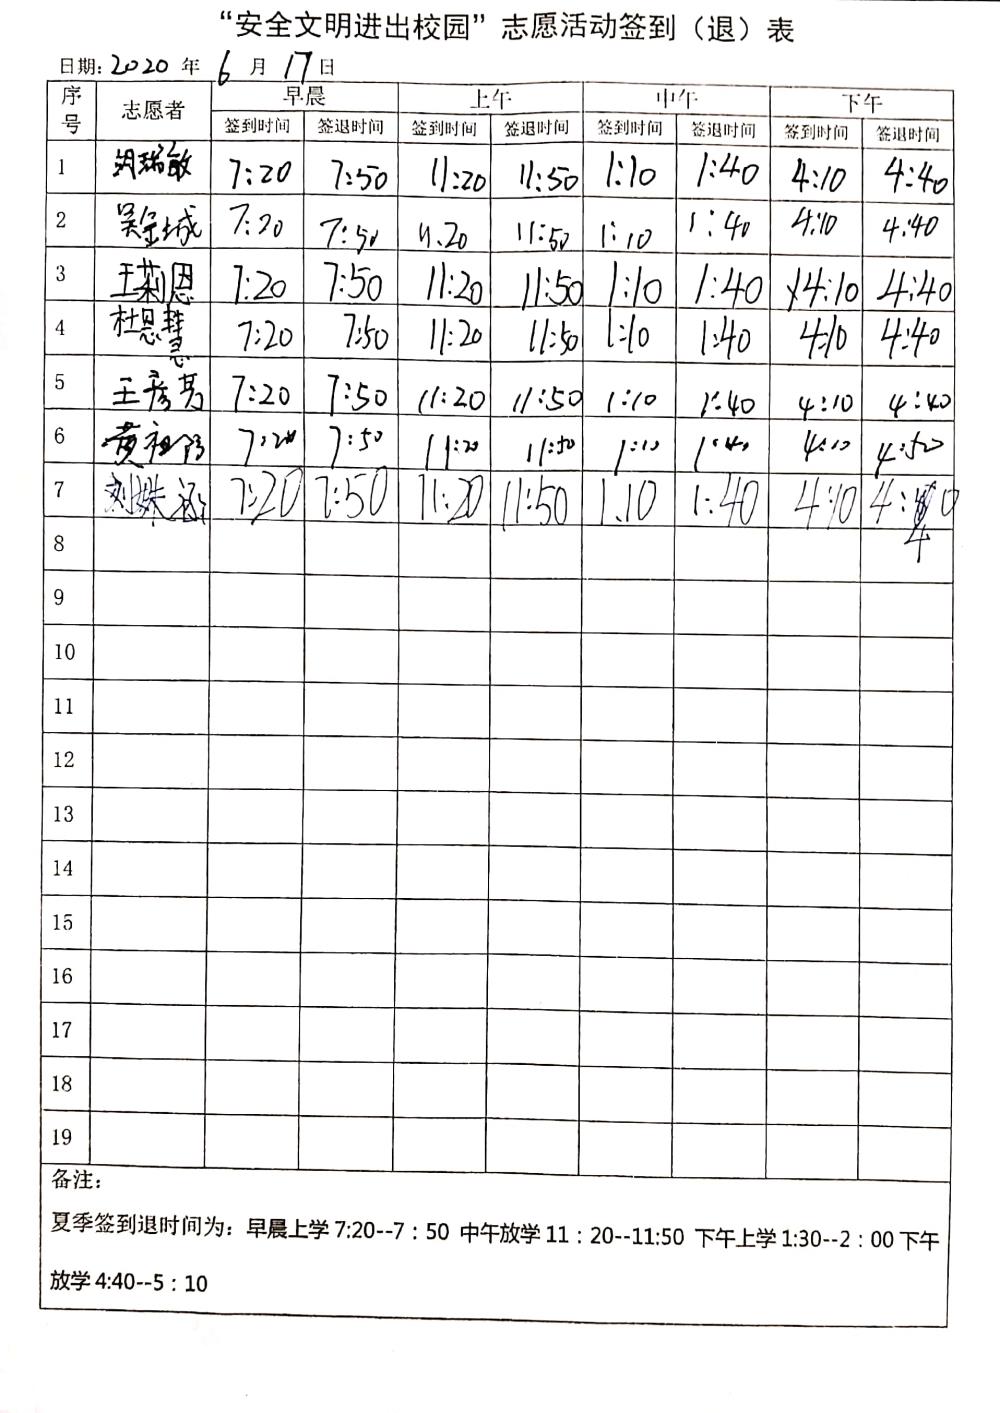 “安全文明进出校园”志愿活动签到（退）表
日期：2020 年 6 月 17 日
序号 志愿者 早晨 上午 中午 下午
签到时间 签退时间 签到时间 签退时间 签到时间 签退时间 签到时间 签退时间
1 胡瑞敏 7:20 7:50 11:20 11:50 1:10 1:40 4:10 4:40
2 吴金城 7:20 7:50 11.20 11:50 1:10 1:40 4:10 4:40
3 王莉恩 7:20 7:50 11:20 11:50 1:10 1:40 4:10 4:40
4 杜思慧 7:20 7:50 11:20 11:50 1:10 1:40 4:10 4:40
5 王彦 7:20 7:50 11:20 11:50 1:10 1:40 4:10 4:40
6 黄祖 7:20 7:50 11:20 11:50 1:10 1:40 4:10 4:50
7 刘姝涵 7:20 7:50 11:20 11:50 1:10 1:40 4:10 4:40
8
9
10
11
12
13
14
15
16
17
18
19
备注：
夏季签到退时间为：早晨上学 7:20--7：50 中午放学 11：20--11:50 下午上学 1:30--2：00 下午
放学 4:40--5：10